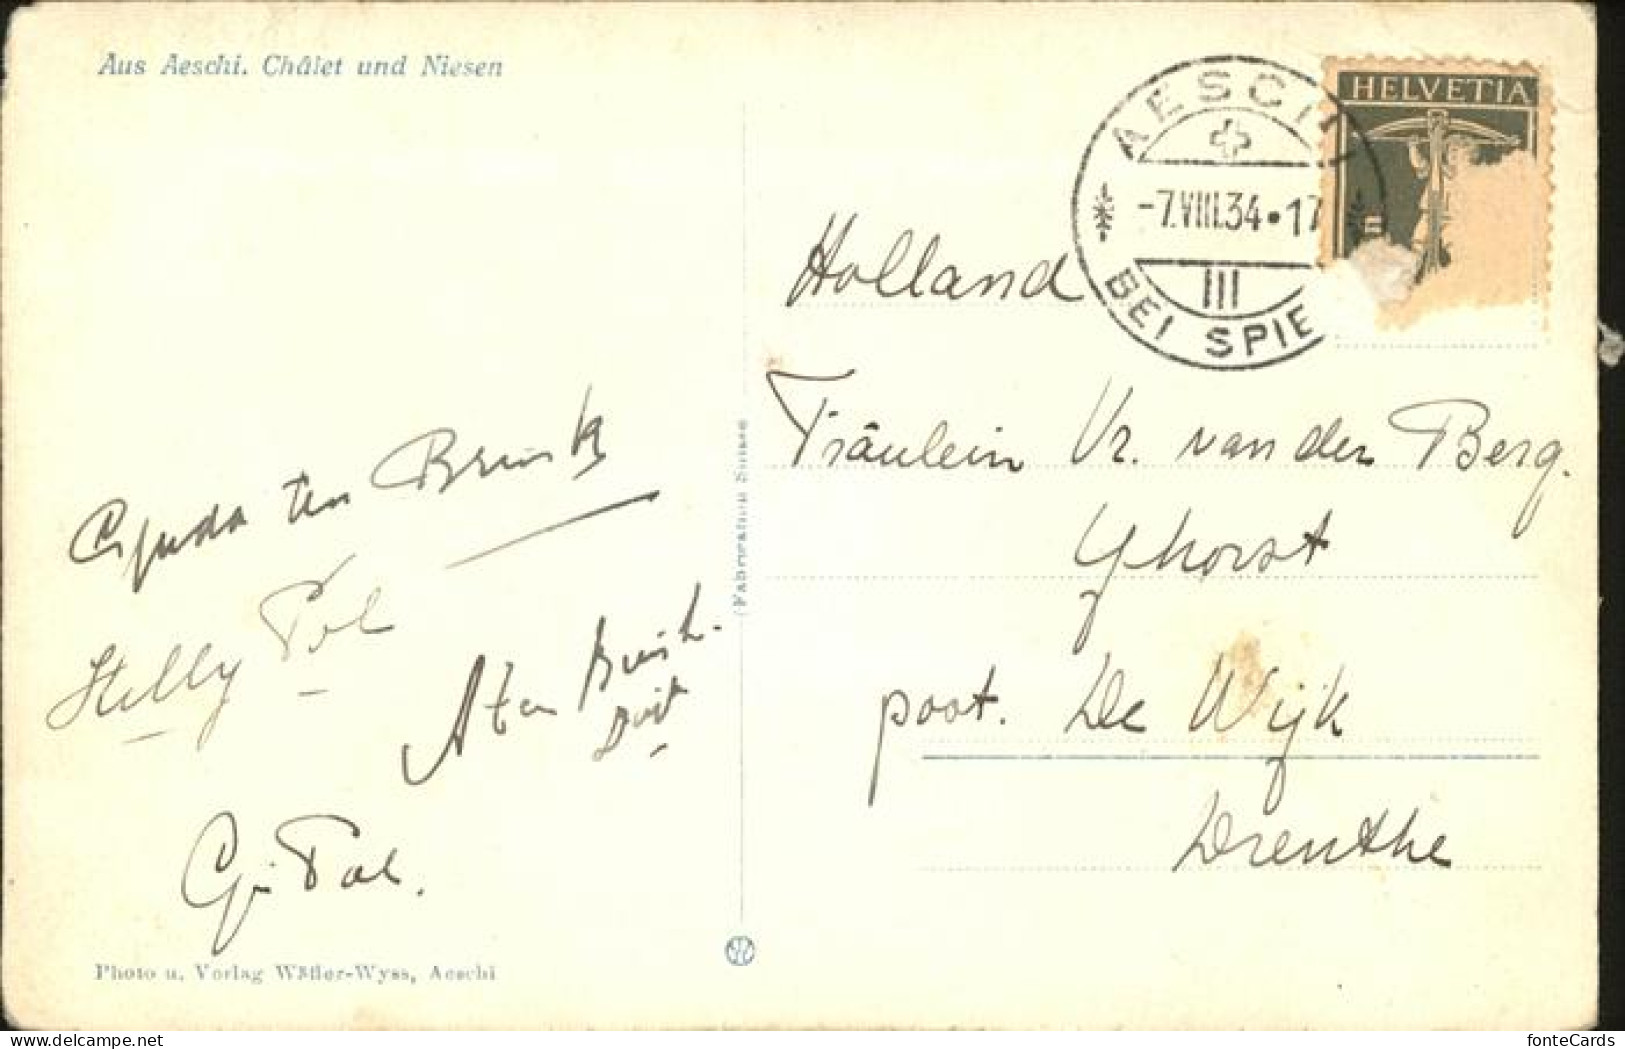 Aus Aeschi. Châlet und Niesen
HELVETIA
AESCHI
-7.VIII.34•17
III
BEI SPIE
Holland
Fräulein Vr. van der Berg.
Ghorst
post. De Wijk
Drenthe
ten Brink
Pol
A ten Brink
G. Pol.
(Fabrication Suisse)
Photo u. Verlag Wäfler-Wyss, Aeschi
www.delcampe.net
tatjana2
fonteCards